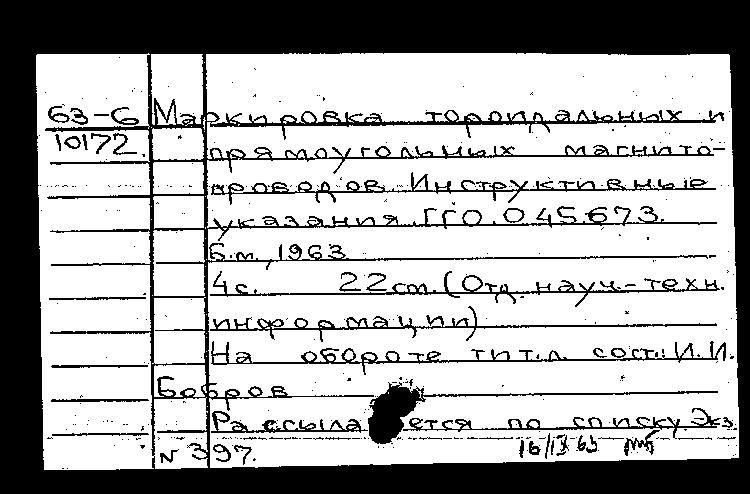 63-6 Маркировка тороидальных и
10172 прямоугольных магнито-
проводов. Инструктивные
указания ГГО.045.673.
Б.м., 1963
4с. 22см. (Отд. науч.-техн.
информации)
На обороте тит.л. сост.: И.И.
Бобров
Рассылается по списку. Экз
N 397. 16/IX 63